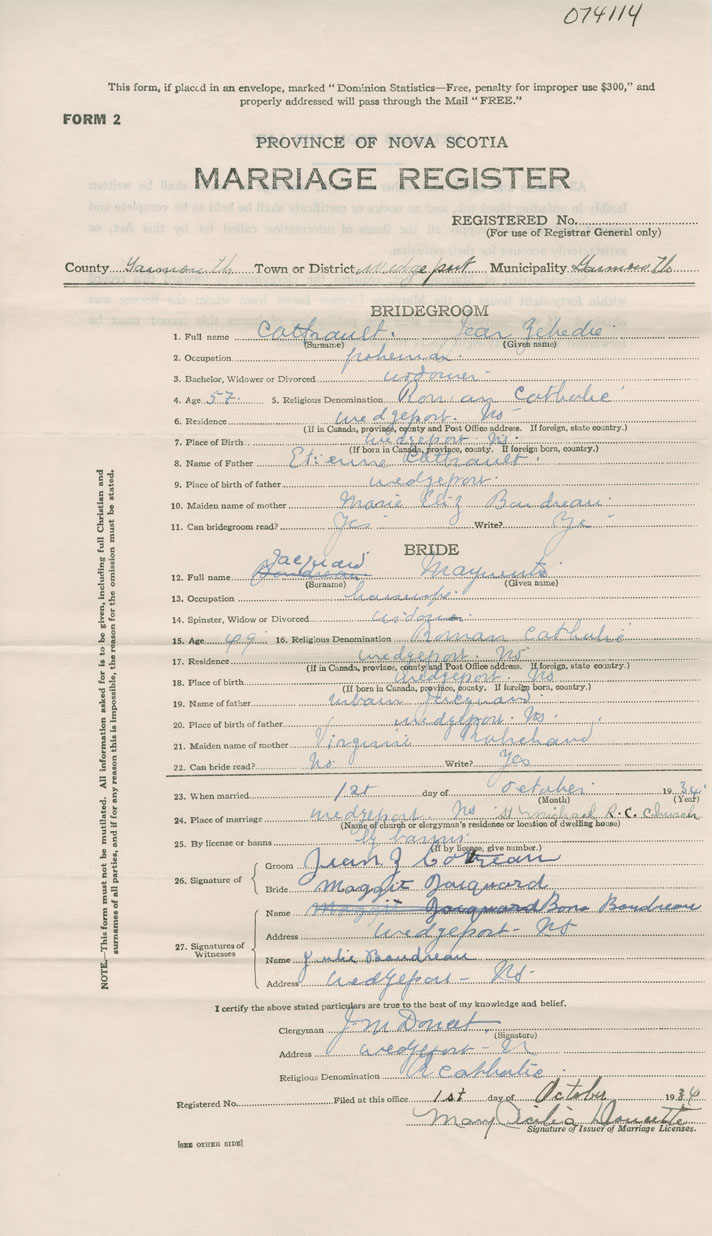 074114
This form, if placed in an envelope, marked "Dominion Statistics—Free, penalty for improper use $300," and
properly addressed will pass through the Mail "FREE."
FORM 2
PROVINCE OF NOVA SCOTIA
MARRIAGE REGISTER
REGISTERED No.
(For use of Registrar General only)
County Yarmouth Town or District Wedgeport Municipality Yarmouth
BRIDEGROOM
1. Full name Cottrault. Jean Zebedie
(Surname) (Given name)
2. Occupation
3. Bachelor, Widower or Divorced widower
4. Age 57. 5. Religious Denomination Roman Catholic
6. Residence Wedgeport. Ns
(If in Canada, province, county and Post Office address. If foreign, state country.)
7. Place of Birth Wedgeport Ns.
(If born in Canada, province, county. If foreign born, country.)
8. Name of Father Etienne Cottrault.
9. Place of birth of father Wedgeport.
10. Maiden name of mother Marie Eliz Boudreau
11. Can bridegroom read? Yes Write? Ye
BRIDE
Jacquard
12. Full name Boudreau
(Surname) (Given name)
13. Occupation
14. Spinster, Widow or Divorced widow
15. Age 49 16. Religious Denomination Roman Catholic
17. Residence Wedgeport. Ns.
(If in Canada, province, county and Post Office address. If foreign, state country.)
18. Place of birth Wedgeport. Ns
(If born in Canada, province, county. If foreign born, country.)
19. Name of father Urbain Jacquard
20. Place of birth of father Wedgeport. Ns.
21. Maiden name of mother Virginie
22. Can bride read? No Write? Yes
23. When married 1st day of October 1934
(Month) (Year)
24. Place of marriage Wedgeport Ns St Michael R.C. Church
(Name of church or clergyman's residence or location of dwelling house)
25. By license or banns by banns
(If by license, give number.)
26. Signature of
Groom Jean Z Cotreau
Bride Maggie Jacquard
27. Signatures of Witnesses
Name Maggie Jacquard Bona Boudreau
Address Wedgeport - NS
Name Julie Boudreau
Address Wedgeport - Ns.
I certify the above stated particulars are true to the best of my knowledge and belief.
Clergyman J M Doucet
(Signature)
Address Wedgeport
Religious Denomination R Catholic
Registered No. Filed at this office 1st day of October 1934
Mary Cecilia Doucette
Signature of Issuer of Marriage Licenses.
[SEE OTHER SIDE]
NOTE.—This form must not be mutilated. All information asked for is to be given, including full Christian and
surnames of all parties, and if for any reason this is impossible, the reason for the omission must be stated.